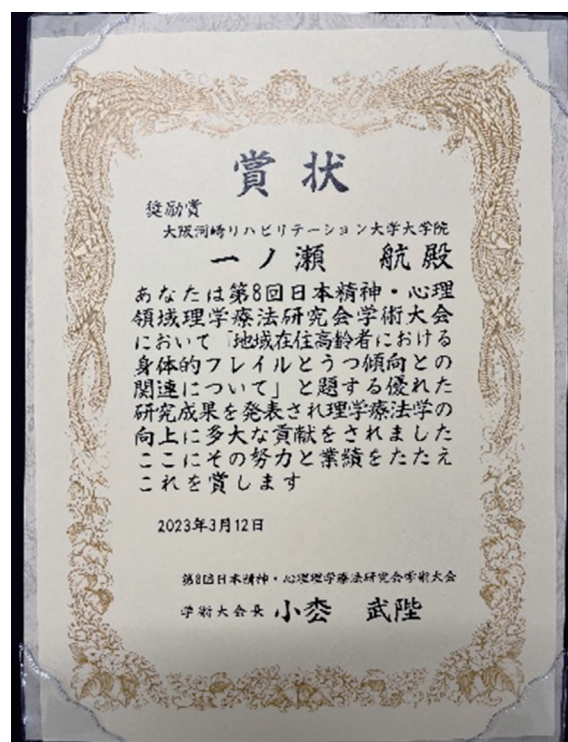 賞状
奨励賞
大阪河崎リハビリテーション大学大学院
一ノ瀬 航殿
あなたは第8回日本精神・心理
領域理学療法研究会学術大会
において「地域在住高齢者における
身体的フレイルとうつ傾向との
関連について」と題する優れた
研究成果を発表され理学療法学の
向上に多大な貢献をされました
ここにその努力と業績をたたえ
これを賞します
2023年3月12日
第8回日本精神・心理理学療法研究会学術大会
学術大会長 小枩 武陛